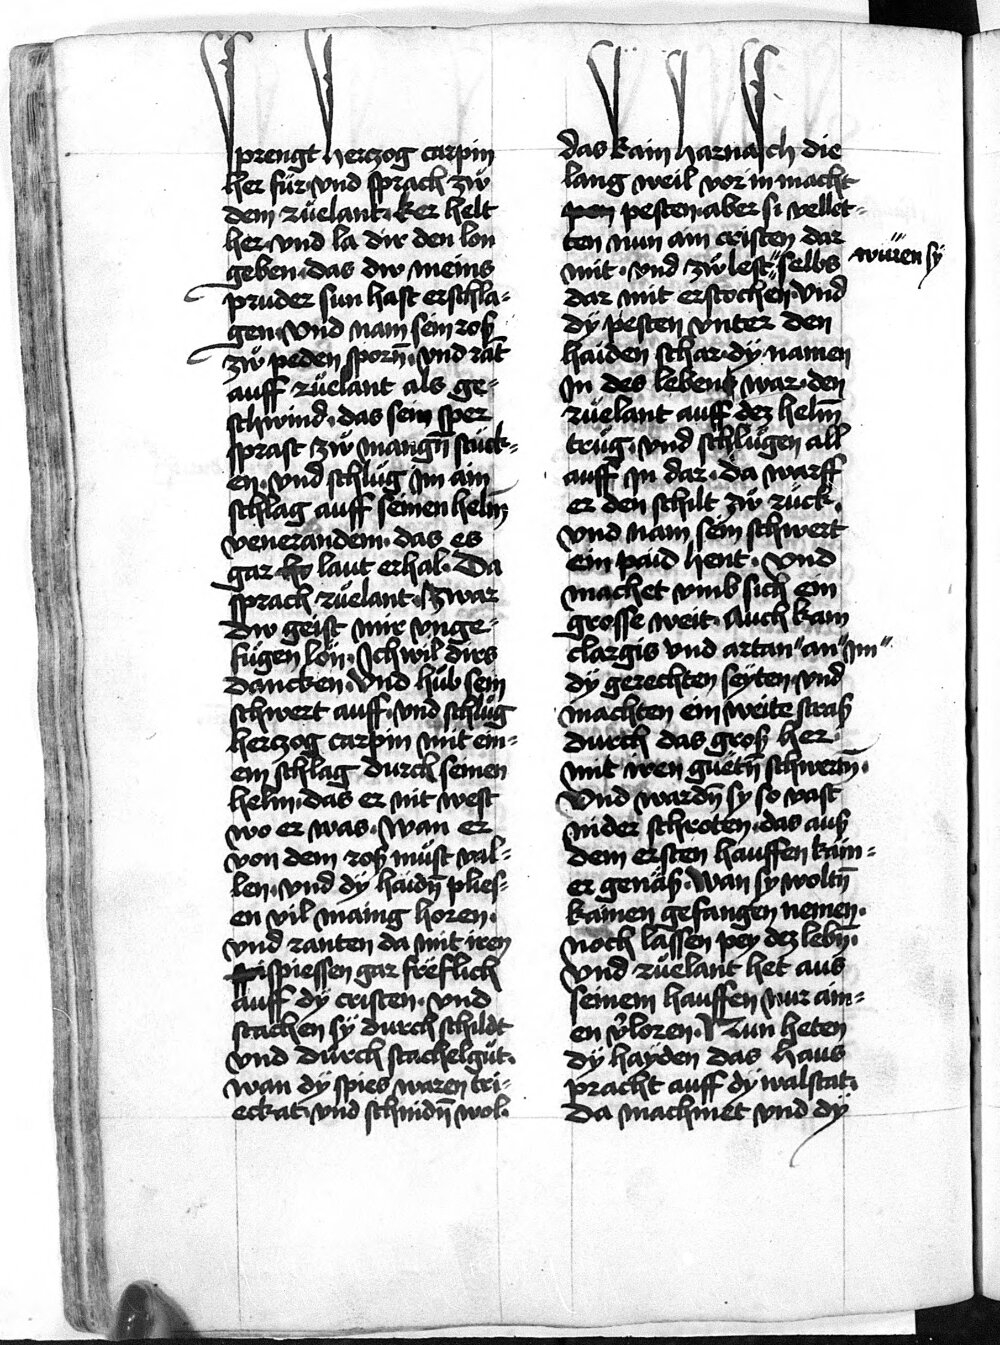 sprengt herczog carpin
her für vnd sprach zw
dem rüelant. ker helt
her. vnd la dir den lon
geben. das dw meins
pruder sun hast erschla-
gen. Vnd nam sein roß
zw peden sporn̄. vnd rāt
auff rüelant als ge-
schwind. das sein sper
sprast zw mangn̄ stuck-
en. vnd schlüg im ain
schlag auff seinen helm
venerandem. das es
gar laut erhal. Da
sprach rüelant. zwar
dw geist mir vnge-
fügen lon. Ich wil dirs
dancken. Vnd hüb sein
schwert auff. vnd schlüg
herczog carpin mit ein-
em schlag durch seinen
helm. das er nit west
wo er was. Wan er
von dem roß müst val-
len. vnd dy haidn̄ plies-
en vil maing horen.
vnd ranten da mit iren
spiessen gar frëflich
auff dy cristen. vnd
stachen sÿ durch schildt
vnd durch stachelgüt.
wan dÿ spies waren tri-
eckat. vnd schnidn̄ wol.
das kain harnasch die
lang weil vor in macht
pesten. aber si vellet-
ten nun ain cristen dar
mit. vnd zw lest " selbs
würen sÿ
dar mit erstochen. Vnd
dÿ pesten vnter den
haiden schar. dÿ namen
in des lebens war. den
rüelant auff dez helm̄
trüg. vnd schlügen all
auff in dar. da warff
er den schilt zw rück.
vnd nam sein schwert
ein paid hent. Vnd
machet vmb sich ein
grosse weit. Auch kam
clargis vnd artan " an " im "
dÿ gerechten seÿten. vnd
machten ein weite straß
durch das groß her.
mit iren guetn̄ schwertn̄.
Vnd wardn̄ sÿ so vast
nider schroten. das auß
dem ersten hauffen kain-
er genäß. Wan sy woltn̄
kainen gefangen nemen.
noch lassen pey dez lebn̄.
Vnd rüelant het aus
seinem hauffen nur ain-
en v̉loren. Nun heten
dÿ hayden das haus
pracht auff dÿ walstat.
Da machmet vnd dÿ